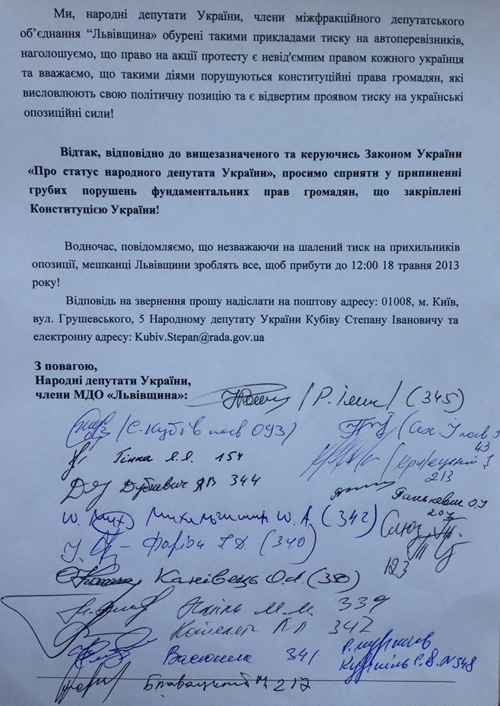 Ми, народні депутати України, члени міжфракційного депутатського
об’єднання “Львівщина» обурені такими прикладами тиску на автоперевізників,
наголошуємо, що право на акції протесту є невід'ємним правом кожного українця
та вважаємо, що такими діями порушуються конституційні права громадян, які
висловлюють свою політичну позицію та є відвертим проявом тиску на українські
опозиційні сили!
Відтак, відповідно до вищезазначеного та керуючись Законом України
«Про статус народного депутата України», просимо сприяти у припиненні
грубих порушень фундаментальних прав громадян, що закріплені
Конституцією України!
Водночас, повідомляємо, що незважаючи на шалений тиск на прихильників
опозиції, мешканці Львівщини зроблять все, щоб прибути до 12:00 18 травня 2013
року!
Відповідь на звернення прошу надіслати на поштову адресу: 01008, м. Київ,
вул. Грушевського, 5 Народному депутату України Кубіву Степану Івановичу та
електронну адресу: Kubiv.Stepan@rada.gov.ua
З повагою,
Народні депутати України,
члени МДО «Львівщина»:
(345)
/С. Кубів посв 093)
43
154
213
Дубневич 344
207
(342)
Фаріон І.Д. (340)
123
Канівець О.Л.
М.М. 339
Л.Л 342
Васюник 341
№348
217